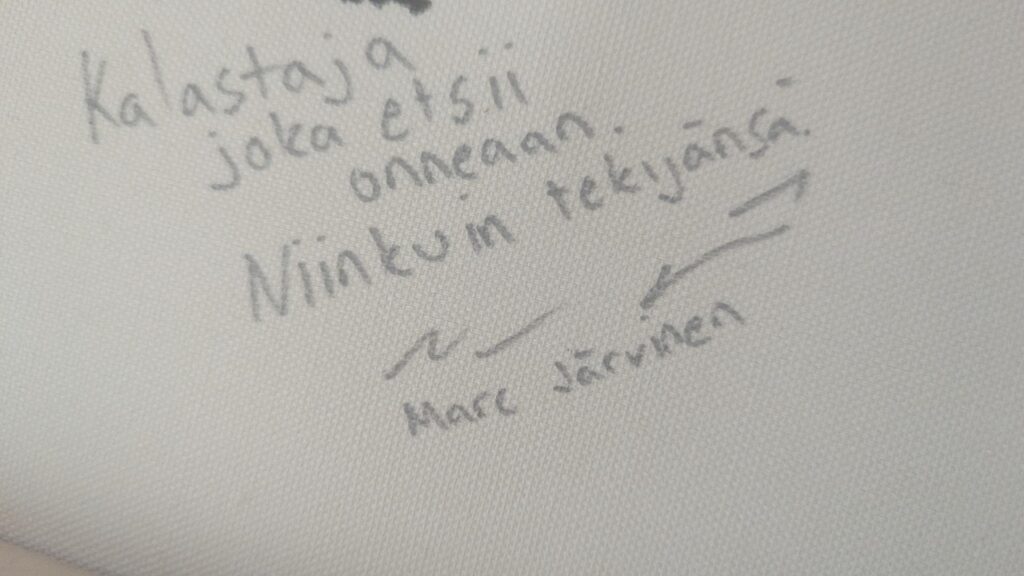 Kalastaja
joka etsii
onneaan.
Niinkuin tekijänsä.
Marc Järvinen